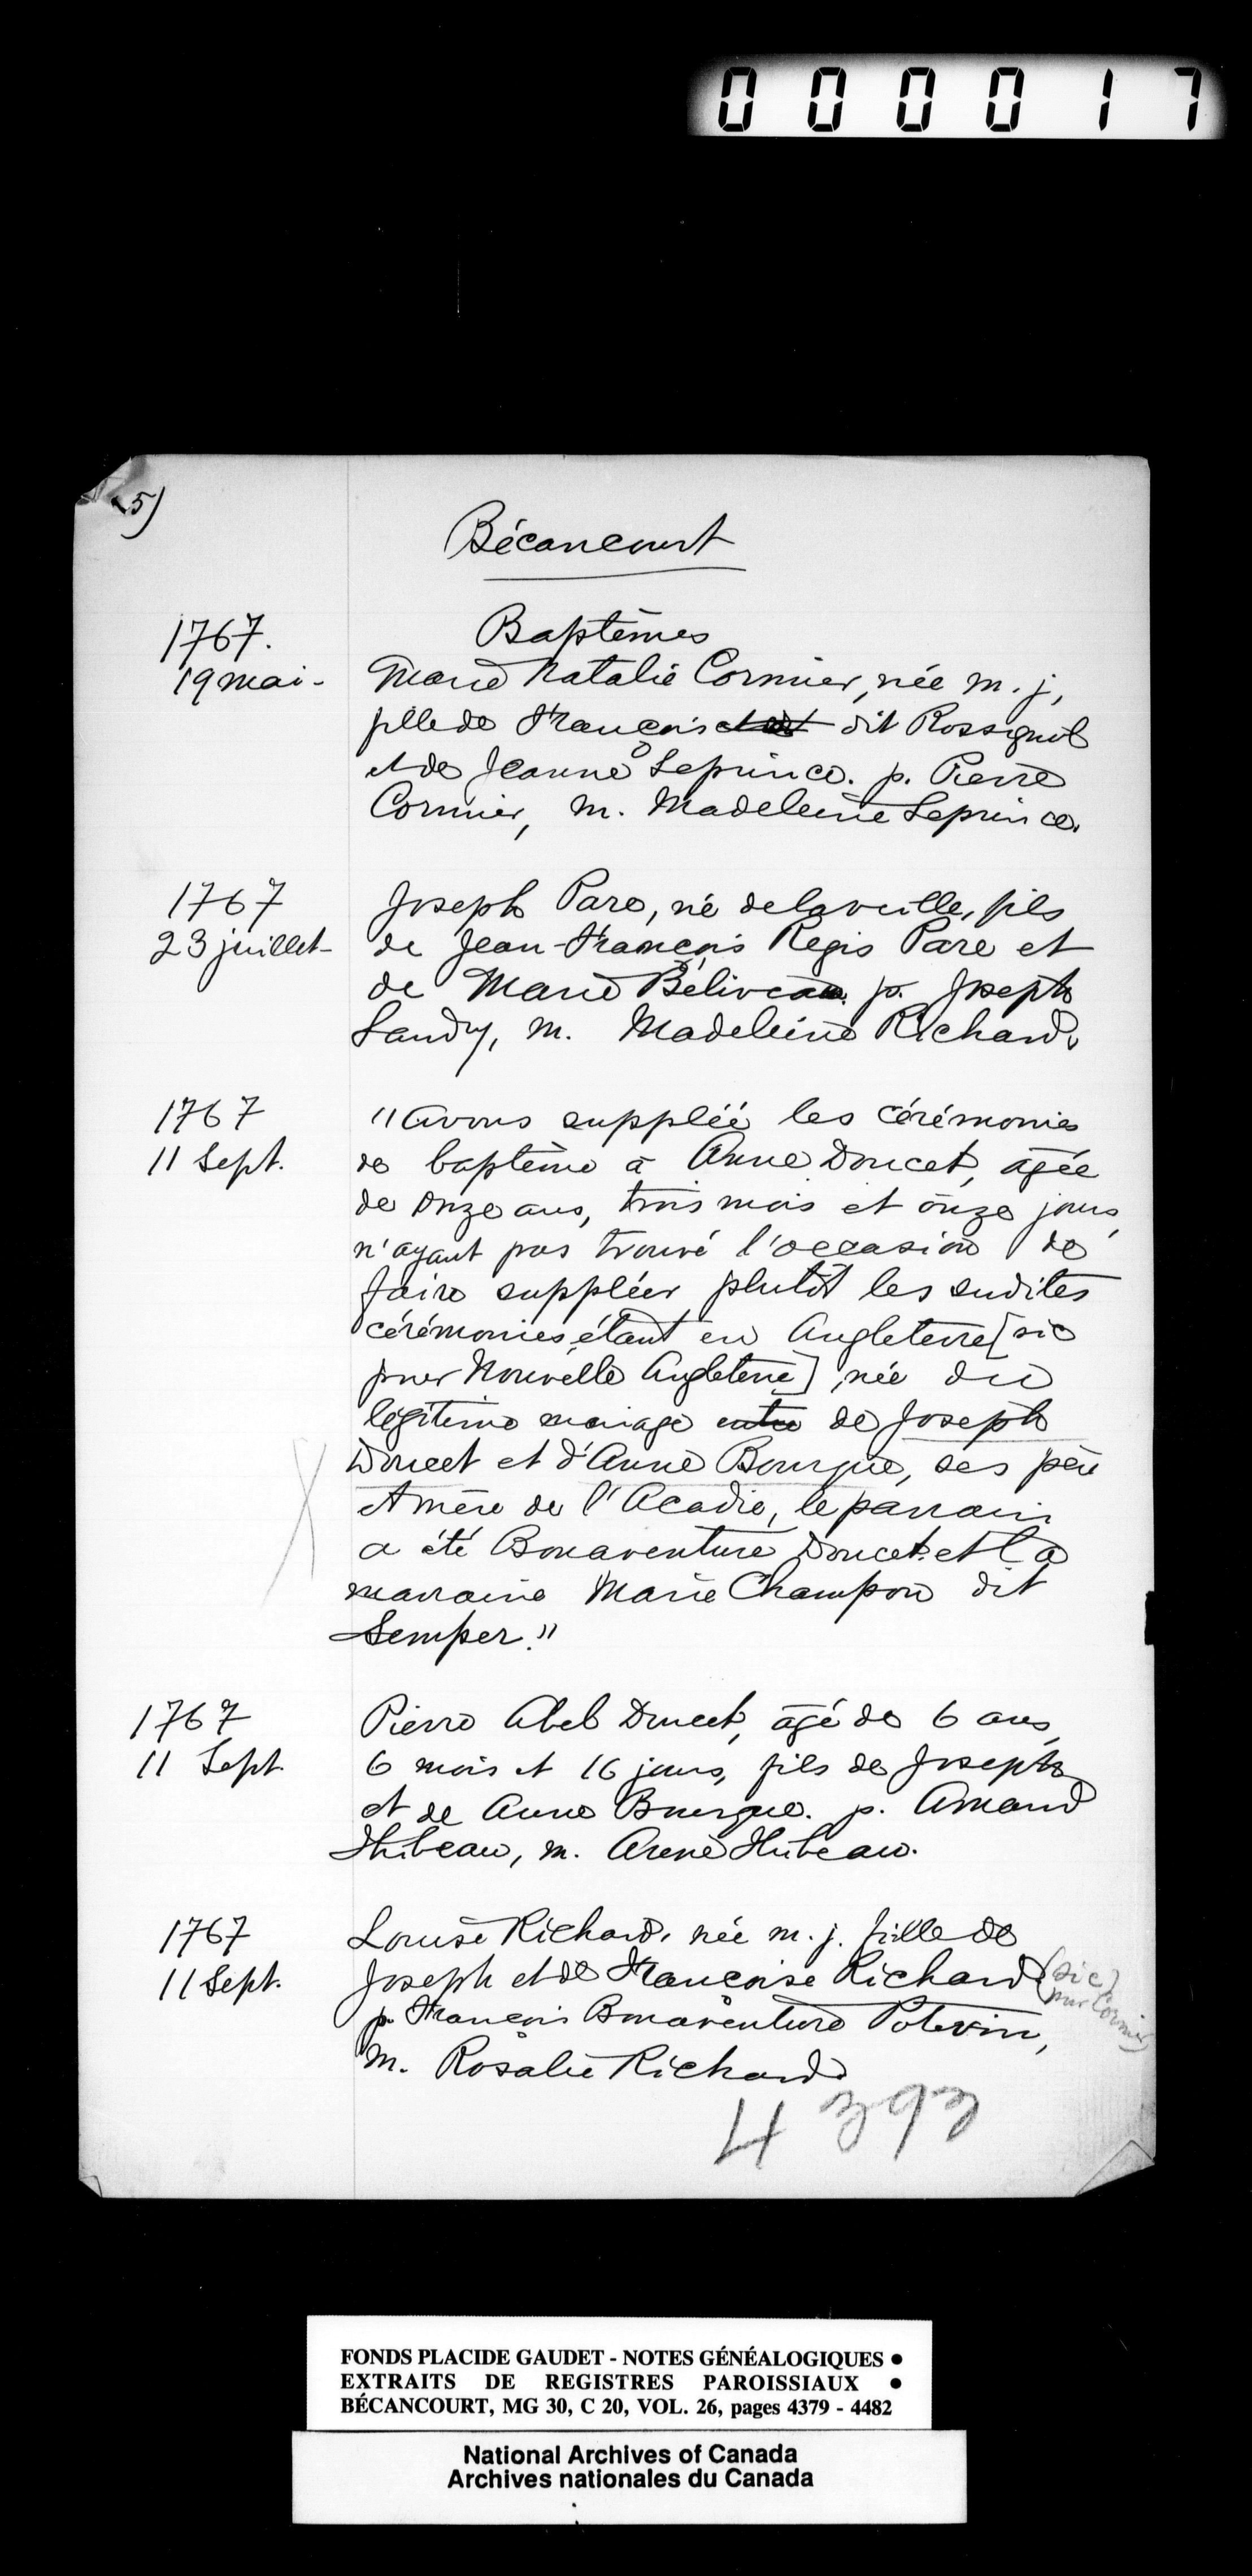 000017
5)
Bécancourt
1767. Baptêmes
19 mai - Marie Natalie Cormier, née m. j,
fille de François dit Rossignol
et de Jeanne Leprince. p. Pierre
Cormier, m. Madeleine Leprince.
1767 Joseph Pare, né de la veille, fils
23 juillet - de Jean-François Regis Pare et
de Marie Béliveau. p. Joseph
Landry, m. Madeleine Richard.
1767 "Avons suppléé les cérémonies
11 Sept. de baptême à Anne Doucet, agée
de onze ans, trois mois et onze jours,
n'ayant pas trouvé l'occasion de
faire suppléer plutôt les sudites
cérémonies, étant en Angleterre [sic
pour Nouvelle Angleterre], née du
légitime mariage entre de Joseph
Doucet et d'Anne Bourque, ses père
et mère de l'Acadie, le parrain
a été Bonaventure Doucet et la
marraine Marie Champou dit
Semper."
1767 Pierre Abel Doucet, agé de 6 ans,
11 Sept. 6 mois et 16 jours, fils de Joseph
et de Anne Bourque. p. Amand
Thibeau, m. Anne Thibeau.
1767 Louise Richard, née m. j. fille de
11 Sept. Joseph et de Françoise Richard (sic)
pour Cormier)
p. François Bonaventure Potevin,
m. Rosalie Richard
4393
FONDS PLACIDE GAUDET - NOTES GÉNÉALOGIQUES •
EXTRAITS DE REGISTRES PAROISSIAUX •
BÉCANCOURT, MG 30, C 20, VOL. 26, pages 4379 - 4482
National Archives of Canada
Archives nationales du Canada